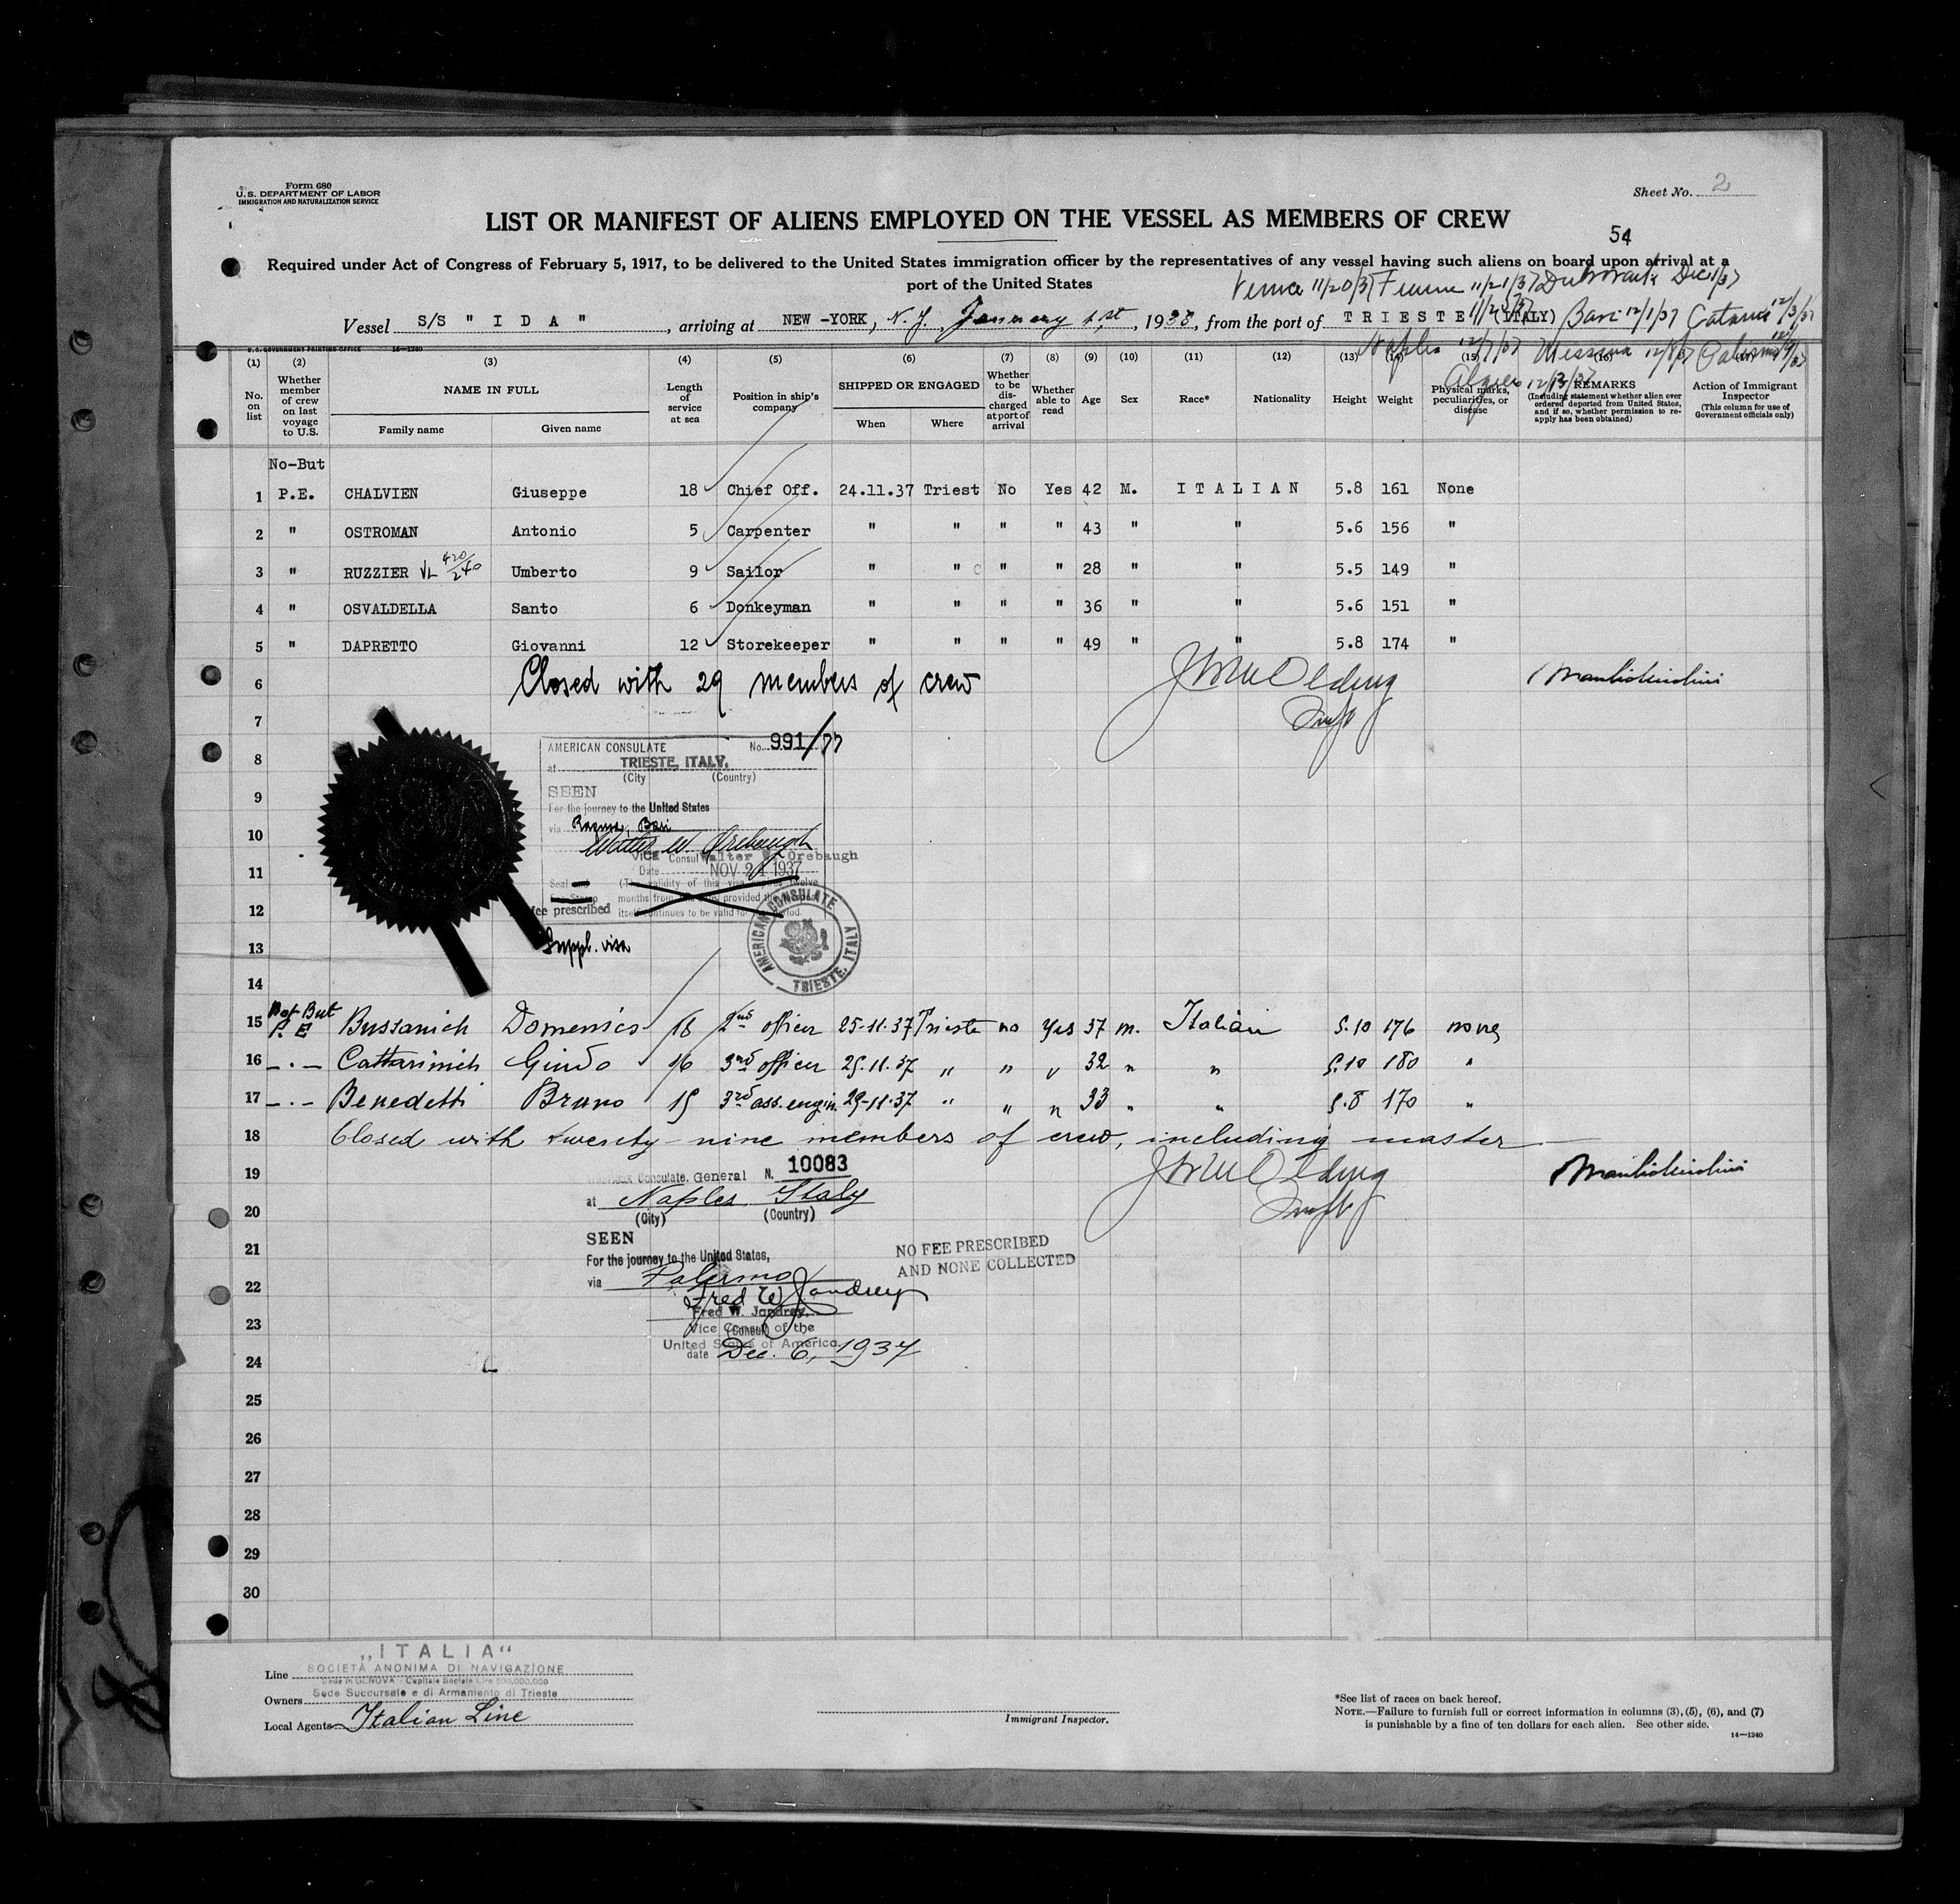 Form 680
U.S. DEPARTMENT OF LABOR
IMMIGRATION AND NATURALIZATION SERVICE
Sheet No. 2
LIST OR MANIFEST OF ALIENS EMPLOYED ON THE VESSEL AS MEMBERS OF CREW
54
Required under Act of Congress of February 5, 1917, to be delivered to the United States immigration officer by the representatives of any vessel having such aliens on board upon arrival at a
port of the United States
11/20/37 Fiume 11/21/37 Dubrovnik Dec 1/37
Vessel S/S " I D A " , arriving at NEW -YORK, N.Y. January 1st, 1938, from the port of T R I E S T E (ITALY) Bari 12/1/37 Catania 12/3/37
Naples 12/7/37 Messina 12/8/37 Palermo 12/9/37
Algiers 12/13/37
U.S. GOVERNMENT PRINTING OFFICE 14-1240
(1) (2) (3) (4) (5) (6) (7) (8) (9) (10) (11) (12) (13) (14) (15) (16) (17)
No. on list
Whether member of crew on last voyage to U.S.
NAME IN FULL
Family name Given name
Length of service at sea
Position in ship's company
SHIPPED OR ENGAGED
When Where
Whether to be discharged at port of arrival
Whether able to read
Age Sex Race* Nationality Height Weight
Physical marks, peculiarities, or disease
REMARKS
(Including statement whether alien ever ordered deported from United States, and if so, whether permission to reapply has been obtained)
Action of Immigrant Inspector
(This column for use of Government officials only)
No-But
1 P.E. CHALVIEN Giuseppe 18 Chief Off. 24.11.37 Triest No Yes 42 M. I T A L I A N 5.8 161 None
2 " OSTROMAN Antonio 5 Carpenter " " " " 43 " " 5.6 156 "
3 " RUZZIER VL 420/240 Umberto 9 Sailor " " " " 28 " " 5.5 149 "
4 " OSVALDELLA Santo 6 Donkeyman " " " " 36 " " 5.6 151 "
5 " DAPRETTO Giovanni 12 Storekeeper " " " " 49 " " 5.8 174 "
6 Closed with 29 members of crew
7
8
9
10
11
12
13
14
AMERICAN CONSULATE No. 991/77
at TRIESTE, ITALY.
(City (Country)
SEEN
For the journey to the United States
via Ragusa, Bari
Walter W. Orebaugh
Vice Consul Walter W. Orebaugh
Date NOV 24 1937
Seal and
(The validity of this visa expires twelve
months from provided the
fee prescribed itself continues to be valid for period.
Suppl. visa
AMERICAN CONSULATE
TRIESTE, ITALY
Not But
15 P.E Bussanich Domenico 18 2nd officer 25-11.37 Trieste no Yes 37 m. Italian 5.10 176 none
16 -.- Cattarinich Guido 16 3rd officer 25.11.37 " " " 32 " " 5.10 180 "
17 -.- Benedetti Bruno 15 3rd ass.engin. 29-11-37 " " " 33 " " 5.8 170 "
18 Closed with twenty-nine members of crew, including master
19
20
21
22
23
24
25
26
27
28
29
30
Consulate General N. 10083
at Naples Italy
(City) (Country)
SEEN
For the journey to the United States,
via Palermo
Fred W. Jandrey
Fred W. Jandrey,
Vice Consul of the
(Consul)
United States of America
date Dec. 6, 1937
NO FEE PRESCRIBED
AND NONE COLLECTED
Line „ITALIA“
SOCIETÀ ANONIMA DI NAVIGAZIONE
Sede in GENOVA - Capitale Sociale Lire 500.000.000
Owners Sede Succursale e di Armamento di Trieste
Local Agents Italian Line
Immigrant Inspector.
*See list of races on back hereof.
NOTE.—Failure to furnish full or correct information in columns (3), (5), (6), and (7)
is punishable by a fine of ten dollars for each alien. See other side.
14—1240